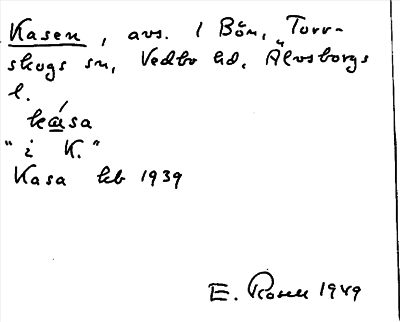 Kasen, avs. t Bön, Torr-
skogs sn, Vedbo hd, Älvsborgs
l.
kása
"i K."
Kasa kb 1939
E. Rosell 1949